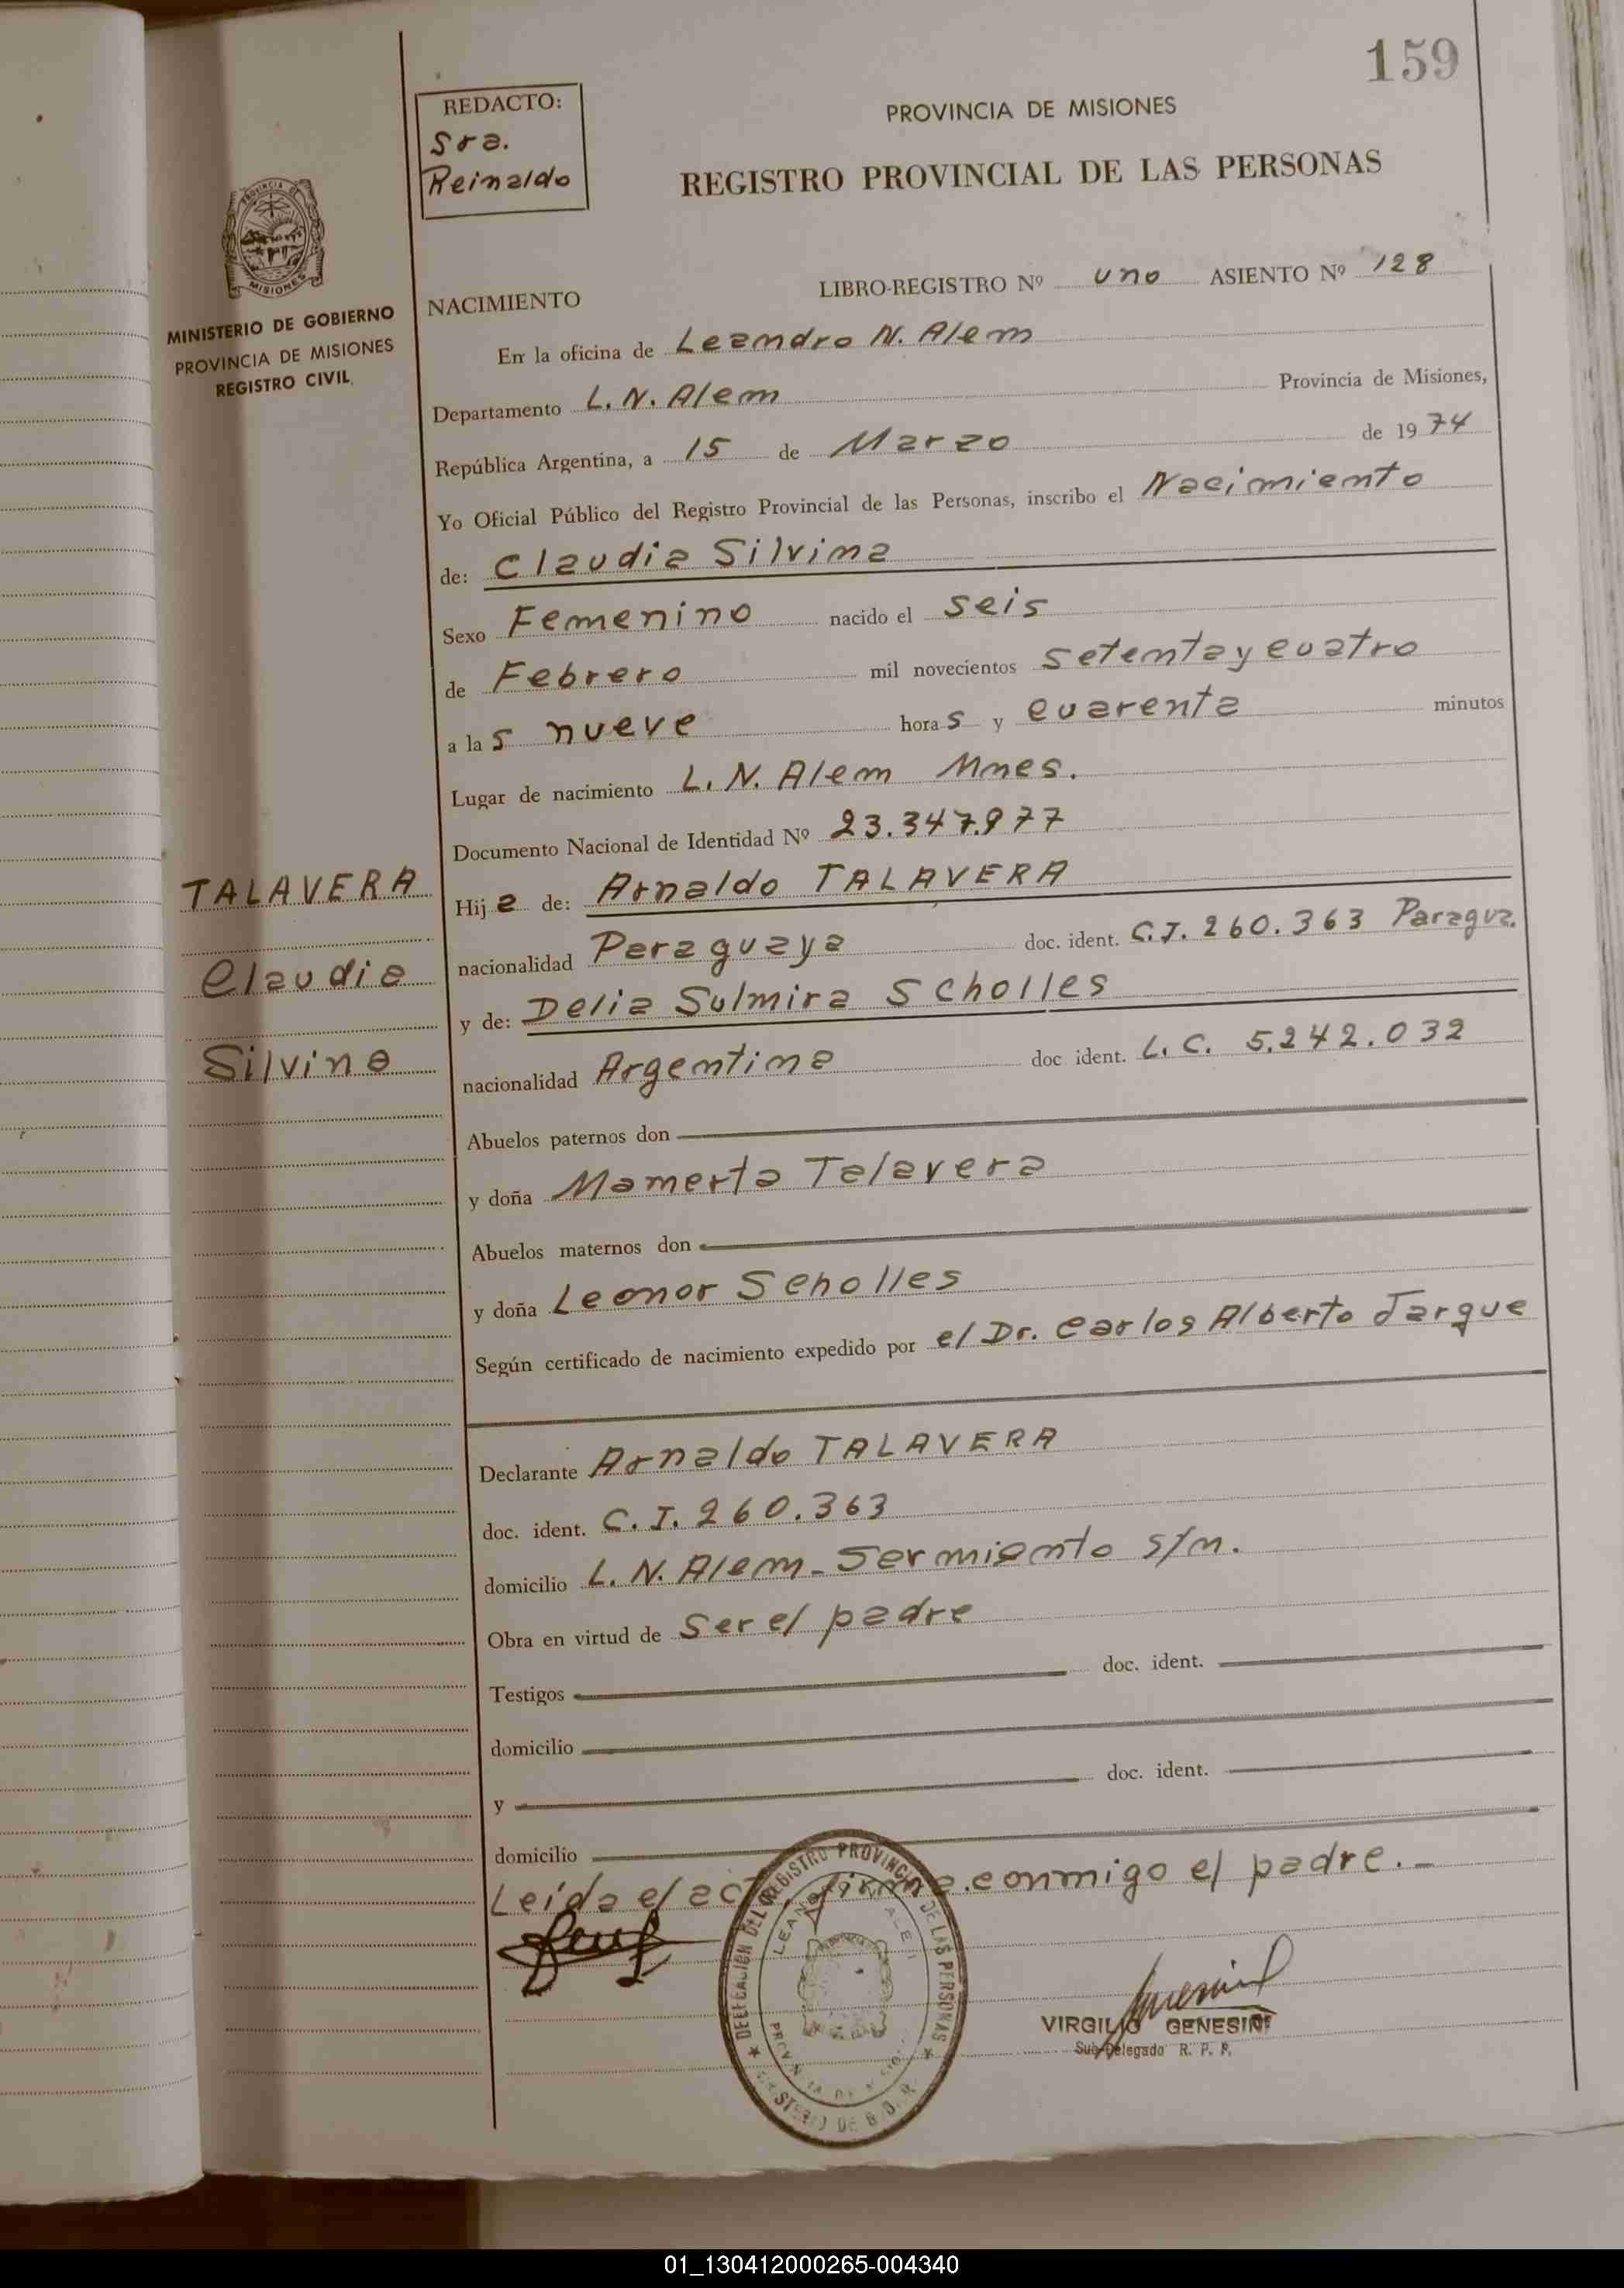 159
REDACTO:
Sra.
Reinaldo
PROVINCIA DE MISIONES
REGISTRO PROVINCIAL DE LAS PERSONAS
MISIONES
MINISTERIO DE GOBIERNO
PROVINCIA DE MISIONES
REGISTRO CIVIL
NACIMIENTO LIBRO-REGISTRO Nº uno ASIENTO Nº 128
En la oficina de Leandro N. Alem
Departamento L. N. Alem Provincia de Misiones,
República Argentina, a 15 de Marzo de 1974
Yo Oficial Público del Registro Provincial de las Personas, inscribo el Nacimiento
de: Claudia Silvina
Sexo Femenino nacido el seis
de Febrero mil novecientos setenta y cuatro
a las nueve horas y cuarenta minutos
Lugar de nacimiento L. N. Alem Mnes.
Documento Nacional de Identidad Nº 23.347.977
TALAVERA
Claudia
Silvina
Hija de: Arnaldo TALAVERA
nacionalidad Paraguaya doc. ident. C.I. 260.363 Paragua.
y de: Delia Sulmira Scholles
nacionalidad Argentina doc ident. L. C. 5.242.032
Abuelos paternos don
y doña Mamerta Talavera
Abuelos maternos don
y doña Leonor Scholles
Según certificado de nacimiento expedido por el Dr. Carlos Alberto Jarque
Declarante Arnaldo TALAVERA
doc. ident. C. I. 260.363
domicilio L. N. Alem - Sarmiento s/n.
Obra en virtud de Ser el padre
Testigos doc. ident.
domicilio
y doc. ident.
domicilio
Leída el acta, firma conmigo el padre.-
DELEGACION DEL REGISTRO PROVINCIAL DE LAS PERSONAS
VIRGILIO GENESINI
Sub-Delegado R. P. P.
01_130412000265-004340